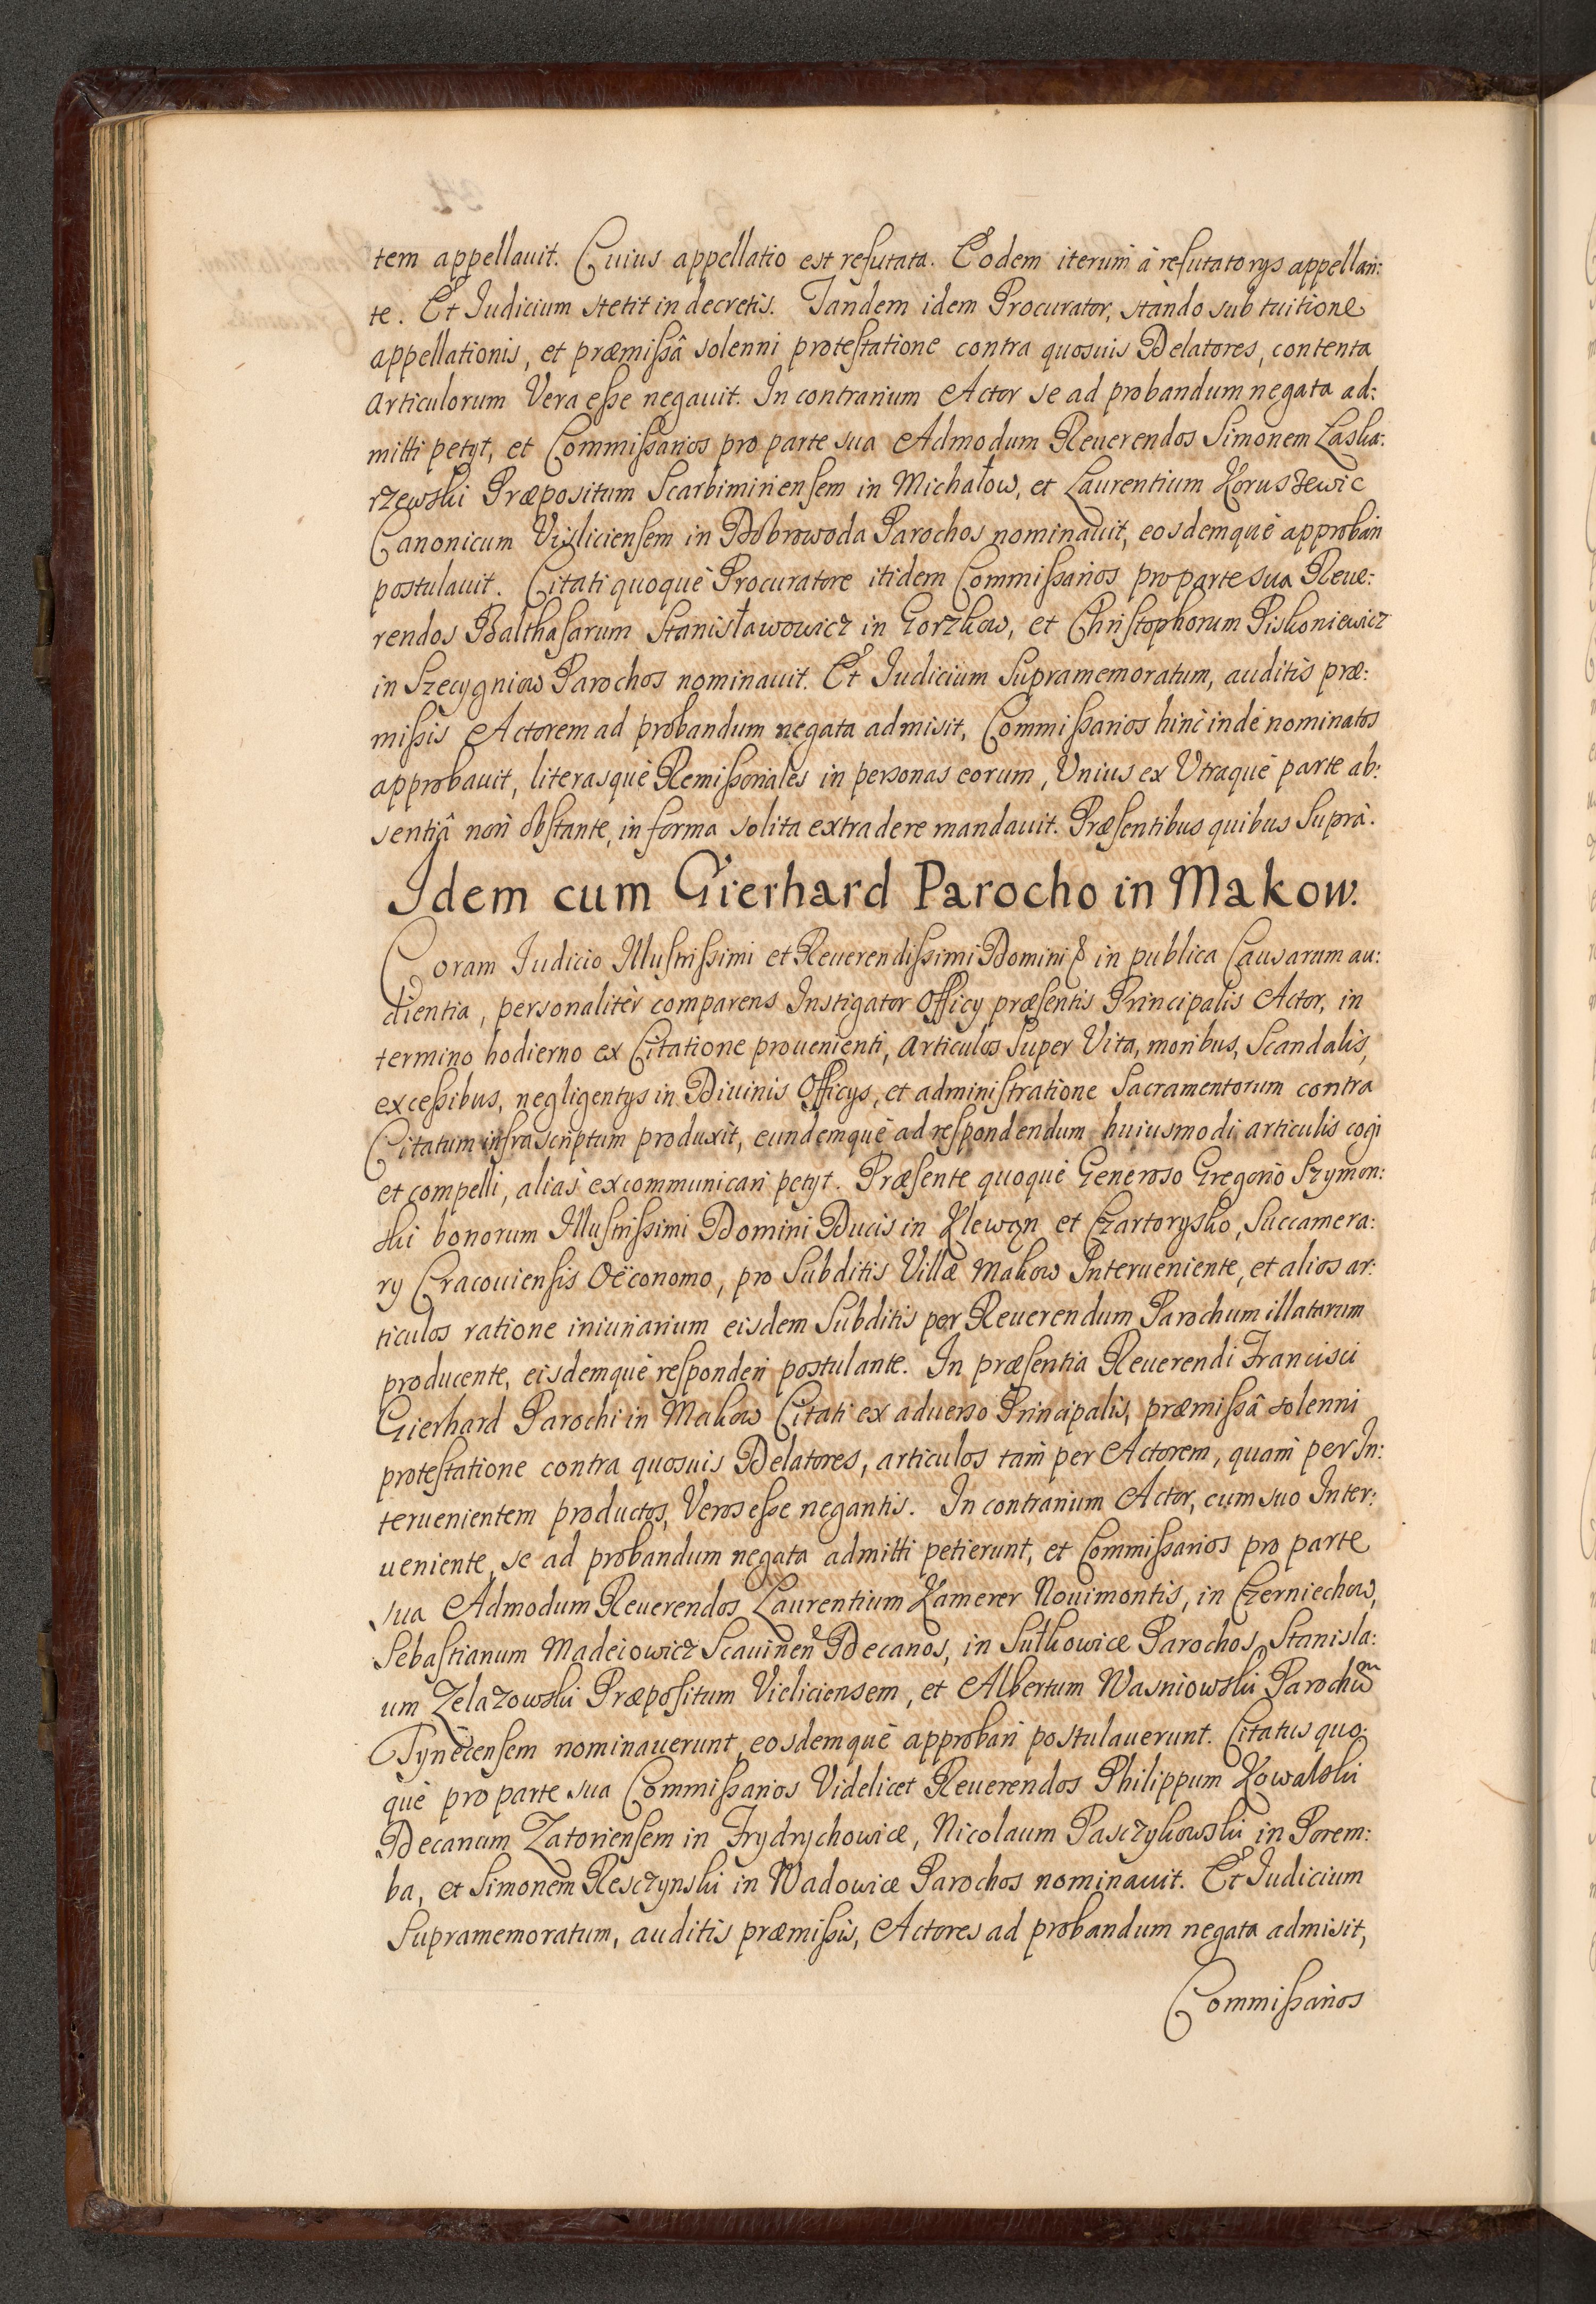 tem appellauit. Cuius appellatio est refutata. Eodem iterum à refutatorys appellan:
te. Et Iudicium stetit in decretis. Tandem idem Procurator, stando sub tuitione
appellationis, et præmissâ solenni protestatione contra quosuis Delatores, contenta
Articulorum Vera esse negauit. In contrarium Actor se ad probandum negata ad:
mitti petyt, et Commissarios pro parte sua Admodum Reuerendos Simonem Laska:
rzewski Præpositum Scarbimiriensem in Michałow, et Laurentium Koruszewic
Canonicum Visliciensem in Dobrowoda Parochos nominauit, eosdemquè approbari
postulauit. Citati quoquè Procuratore itidem Commissarios pro parte sua Reue:
rendos Balthasarum Stanisławowicz in Gorzkow, et Christophorum Piskoniewicz
in Szecygniow Parochos nominauit. Et Iudicium Supramemoratum, auditis præ:
missis Actorem ad probandum negata admisit, Commissarios hinc indè nominatos
approbauit, literasquè Remissoriales in personas eorum, Vnius ex Vtraquè parte ab:
sentiâ non obstante, in forma solita extradere mandauit. Præsentibus quibus Suprà.
Idem cum Gierhard Parocho in Makow.
Coram Iudicio Illustrissimi et Reuerendissimi Domini & in publica Causarum au:
dientia, personalitèr comparens Instigator Officy præsentis Principalis Actor, in
termino hodierno ex Citatione prouenienti, Articulos Super Vita, moribus, Scandalis,
excessibus, negligentys in Diuinis Officys, et administratione Sacramentorum contra
Citatum infrascriptum produxit, eundemquè ad respondendum huiusmodi articulis cogi
et compelli, aliàs excommunicari petyt. Præsente quoquè Generoso Gregorio Szymon:
ski bonorum Illustrissimi Domini Ducis in Klewan et Czartorysko, Succamera:
ry Cracouiensis Oëconomo, pro Subditis Villæ Makow Interueniente, et alios ar:
ticulos ratione iniuriarium eisdem Subditis per Reuerendum Parochum illatarum
producente, eisdemquè responderi postulante. In præsentia Reuerendi Francisci
Gierhard Parochi in Makow Citati ex aduerso Principalis, præmissâ solenni
protestatione contra quosuis Delatores, articulos tam per Actorem, quam per In:
teruenientem productos, Veros esse negantis. In contrarium Actor, cum suo Inter:
ueniente, se ad probandum negata admitti petierunt, et Commissarios pro parte
sua Admodum Reuerendos Laurentium Kamerer Nouimontis, in Czerniechow,
Sebastianum Madeiowicz Scauinen Decanos, in Sułkowice Parochos, Stanisla:
um Zelazowski Præpositum Vieliciensem, et Albertum Wasniowski Parochum
Tynecensem nominauerunt, eosdemquè approbari postulauerunt. Citatus quo:
què pro parte sua Commissarios Videlicet Reuerendos Philippum Kowalski
Decanum Zatoriensem in Frydrychowice, Nicolaum Pasczykowski in Porem:
ba, et Simonem Resczynski in Wadowice Parochos nominauit. Et Iudicium
Supramemoratum, auditis præmissis, Actores ad probandum negata admisit,
Commissarios